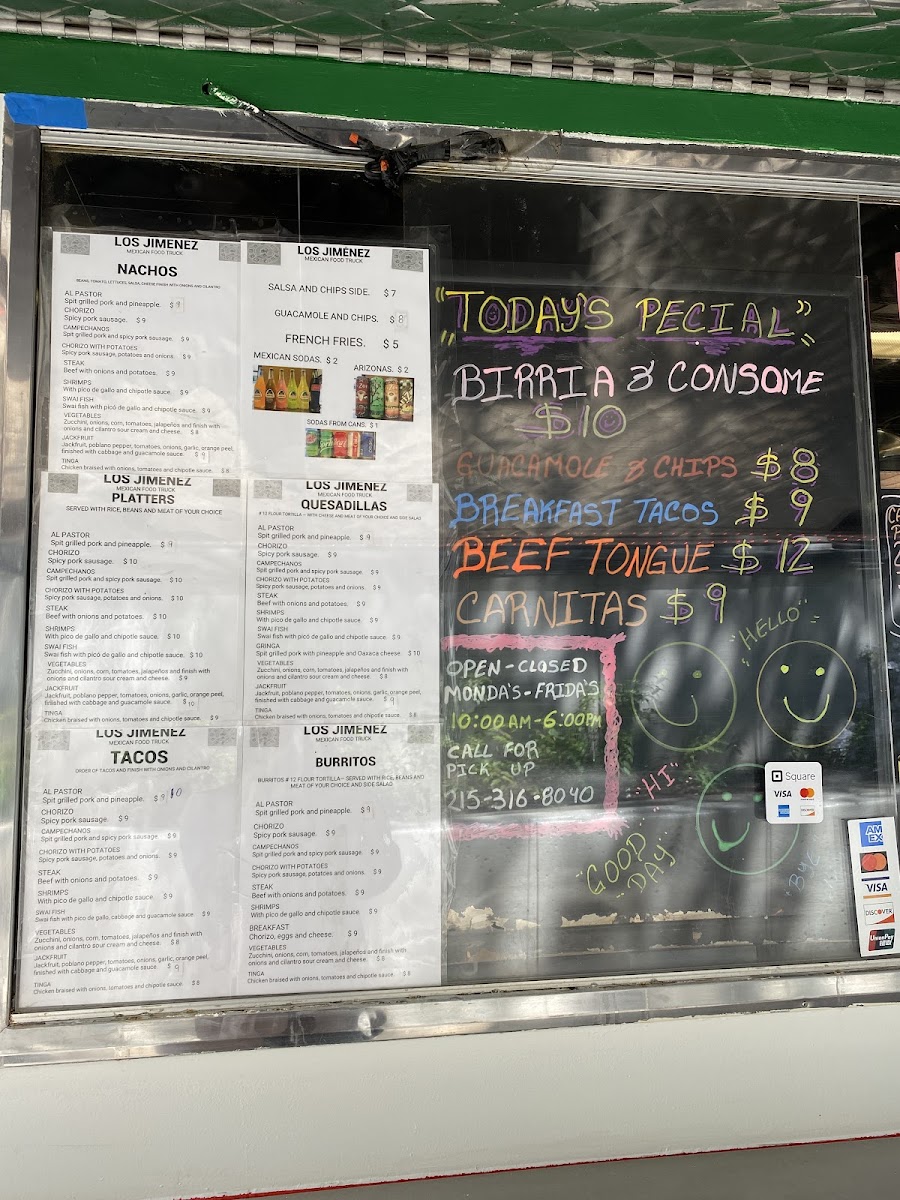 LOS JIMENEZ
MEXICAN FOOD TRUCK
NACHOS
BEANS, TOMATO, LETTUCES, SALSA, CHEESE FINISH WITH ONIONS AND CILANTRO
AL PASTOR
Spit grilled pork and pineapple. $ 9
CHORIZO
Spicy pork sausage. $ 9
CAMPECHANOS
Spit grilled pork and spicy pork sausage. $ 9
CHORIZO WITH POTATOES
Spicy pork sausage, potatoes and onions. $ 9
STEAK
Beef with onions and potatoes. $ 9
SHRIMPS
With pico de gallo and chipotle sauce. $ 9
SWAI FISH
Swai fish with picó de gallo and chipotle sauce. $ 9
VEGETABLES
Zucchini, onions, corn, tomatoes, jalapeños and finish with
onions and cilantro sour cream and cheese. $ 8
JACKFRUIT
Jackfruit, poblano pepper, tomatoes, onions, garlic, orange peel,
finished with cabbage and guacamole sauce. $ 9
TINGA
Chicken braised with onions, tomatoes and chipotle sauce. $ 8
LOS JIMÉNEZ
MEXICAN FOOD TRUCK
SALSA AND CHIPS SIDE. $ 7
GUACAMOLE AND CHIPS. $ 8
FRENCH FRIES. $ 5
MEXICAN SODAS. $ 2
ARIZONAS. $ 2
SODAS FROM CANS. $ 1
LOS JIMENEZ
MEXICAN FOOD TRUCK
PLATTERS
SERVED WITH RICE, BEANS AND MEAT OF YOUR CHOICE
AL PASTOR
Spit grilled pork and pineapple. $ 9
CHORIZO
Spicy pork sausage. $ 10
CAMPECHANOS
Spit grilled pork and spicy pork sausage. $ 10
CHORIZO WITH POTATOES
Spicy pork sausage, potatoes and onions. $ 10
STEAK
Beef with onions and potatoes. $ 10
SHRIMPS
With pico de gallo and chipotle sauce. $ 10
SWAI FISH
Swai fish with pico de gallo and chipotle sauce. $ 10
VEGETABLES
Zucchini, onions, corn, tomatoes, jalapeños and finish with
onions and cilantro sour cream and cheese. $ 9
JACKFRUIT
Jackfruit, poblano pepper, tomatoes, onions, garlic, orange peel,
finished with cabbage and guacamole sauce. $ 10
TINGA
Chicken braised with onions, tomatoes and chipotle sauce. $ 9
LOS JIMENEZ
MEXICAN FOOD TRUCK
QUESADILLAS
# 10 FLOUR TORTILLA – WITH CHEESE AND MEAT OF YOUR CHOICE AND SIDE SALAD
AL PASTOR
Spit grilled pork and pineapple. $ 9
CHORIZO
Spicy pork sausage. $ 9
CAMPECHANOS
Spit grilled pork and spicy pork sausage. $ 9
CHORIZO WITH POTATOES
Spicy pork sausage, potatoes and onions. $ 9
STEAK
Beef with onions and potatoes. $ 9
SHRIMPS
With pico de gallo and chipotle sauce. $ 9
SWAI FISH
Swai fish with pico de gallo and chipotle sauce. $ 9
GRINGA
Spit grilled pork with pineapple and Oaxaca cheese. $ 10
VEGETABLES
Zucchini, onions, corn, tomatoes, jalapeños and finish with
onions and cilantro sour cream and cheese. $ 8
JACKFRUIT
Jackfruit, poblano pepper, tomatoes, onions, garlic, orange peel,
finished with cabbage and guacamole sauce. $ 9
TINGA
Chicken braised with onions, tomatoes and chipotle sauce. $ 8
LOS JIMENEZ
MEXICAN FOOD TRUCK
TACOS
ORDER OF TACOS AND FINISH WITH ONIONS AND CILANTRO
AL PASTOR
Spit grilled pork and pineapple. $ 9 10
CHORIZO
Spicy pork sausage. $ 9
CAMPECHANOS
Spit grilled pork and spicy pork sausage. $ 9
CHORIZO WITH POTATOES
Spicy pork sausage, potatoes and onions. $ 9
STEAK
Beef with onions and potatoes. $ 9
SHRIMPS
With pico de gallo and chipotle sauce. $ 9
SWAI FISH
Swai fish with pico de gallo, cabbage and guacamole sauce. $ 9
VEGETABLES
Zucchini, onions, corn, tomatoes, jalapeños and finish with
onions and cilantro sour cream and cheese. $ 8
JACKFRUIT
Jackfruit, poblano pepper, tomatoes, onions, garlic, orange peel,
finished with cabbage and guacamole sauce. $ 9
TINGA
Chicken braised with onions, tomatoes and chipotle sauce. $ 8
LOS JIMENEZ
MEXICAN FOOD TRUCK
BURRITOS
BURRITOS # 12 FLOUR TORTILLA – SERVED WITH RICE, BEANS AND
MEAT OF YOUR CHOICE AND SIDE SALAD
AL PASTOR
Spit grilled pork and pineapple. $ 9
CHORIZO
Spicy pork sausage. $ 9
CAMPECHANOS
Spit grilled pork and spicy pork sausage. $ 9
CHORIZO WITH POTATOES
Spicy pork sausage, potatoes and onions. $ 9
STEAK
Beef with onions and potatoes. $ 9
SHRIMPS
With pico de gallo and chipotle sauce. $ 9
BREAKFAST
Chorizo, eggs and cheese. $ 9
VEGETABLES
Zucchini, onions, corn, tomatoes, jalapeños and finish with
onions and cilantro sour cream and cheese. $ 8
TINGA
Chicken braised with onions, tomatoes and chipotle sauce. $ 8
"TODAY'S PECIAL"
BIRRIA & CONSOME
$10
GUACAMOLE & CHIPS $8
BREAKFAST TACOS $9
BEEF TONGUE $12
CARNITAS $9
OPEN-CLOSED
MONDA'S-FRIDA'S
10:00AM-6:00PM
CALL FOR
PICK UP
215-316-8040
"HELLO"
"HI"
"GOOD
DAY"
BYE
Square
VISA
AM
EX
VISA
DISCOVER
UnionPay